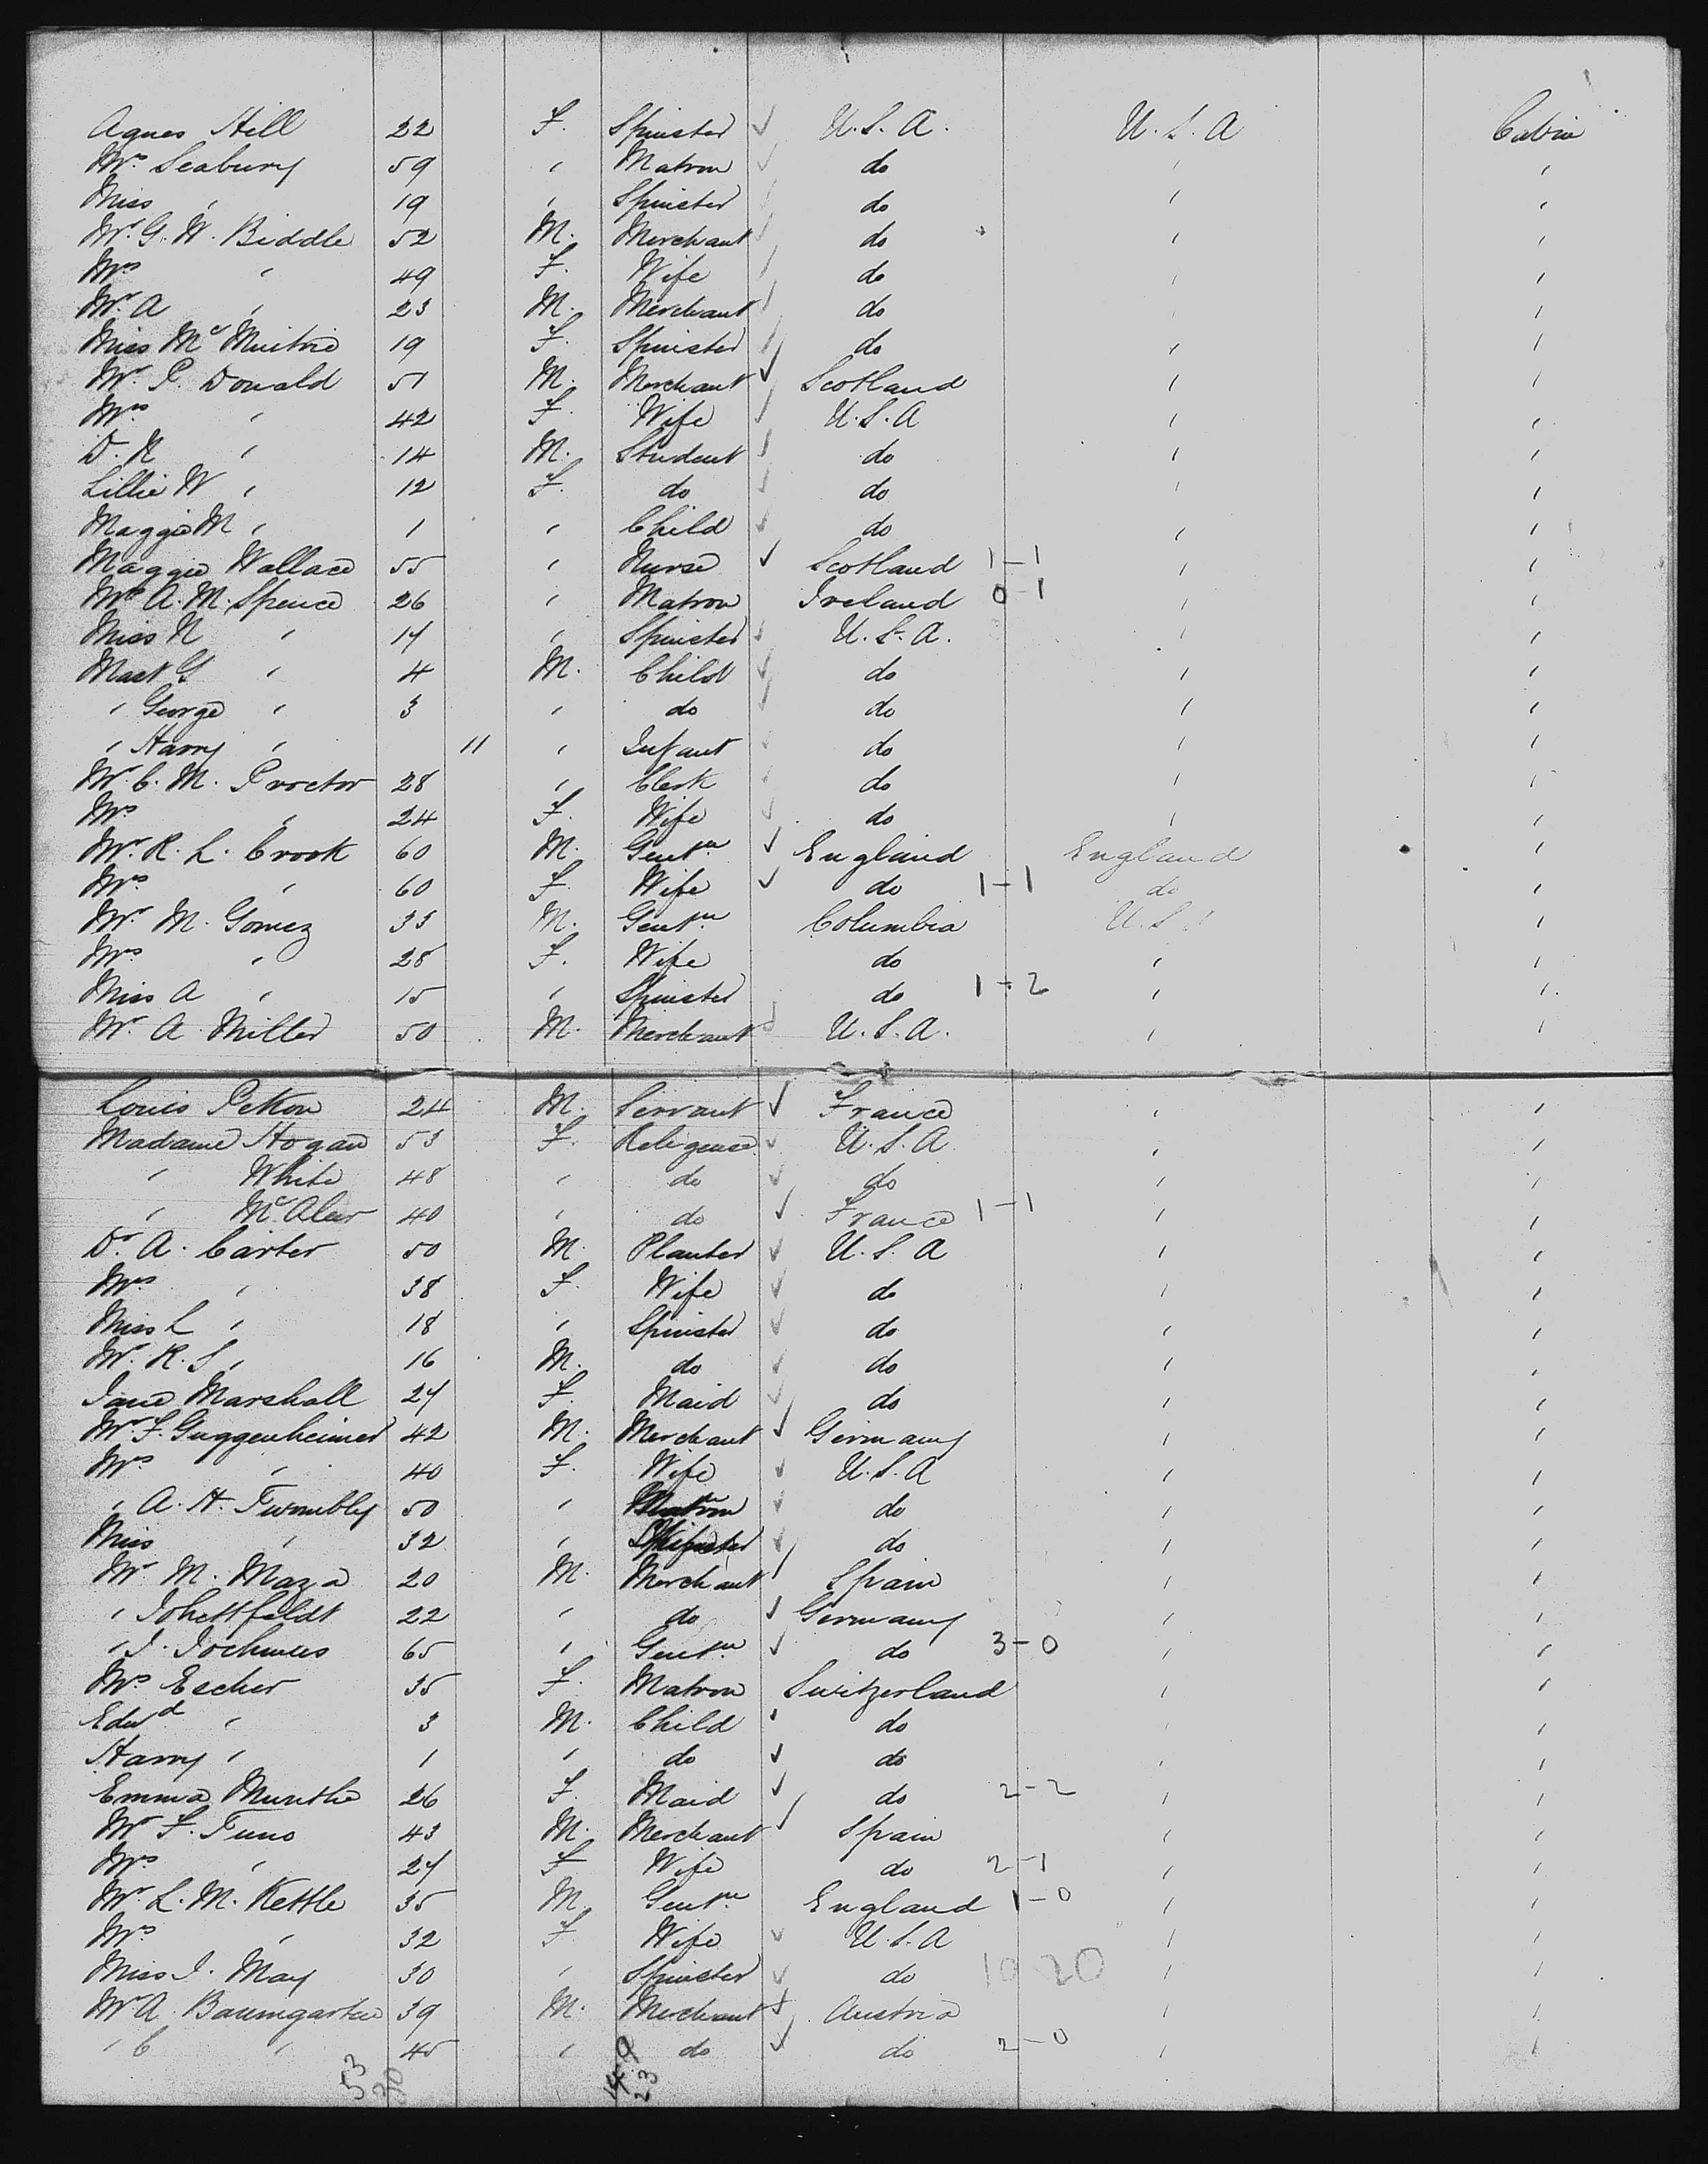 Agnes Hill 22 F. Spinster U.S.A. U.S.A Cabin
Mrs Seabury 59 " Matron do " "
Miss " 19 " Spinster do " "
Mr. G. W. Biddle 52 M. Merchant do " "
Mrs " 49 F. Wife do " "
Mr. A " 23 M. Merchant do "
Miss Mc 19 F. Spinster do " "
Mr. P. Donald 51 M. Merchant Scotland " "
Mrs " 42 F. Wife U.S.A " "
D. R " 14 M. Student do " "
Lillie W " 12 F. do do " "
Maggie M " 1 " Child do " "
Maggie Wallace 55 " Nurse Scotland 1-1 " "
Mrs A. M. Spence 26 " Matron Ireland 0-1 " "
Miss N " 14 " Spinster U.S.A. " "
Mast G " 4 M. Child do " "
" George " 3 " do do " "
" Harry " 11 " Infant do " "
Mr. C. M. Proctor 28 " Clerk do " "
Mrs " 24 F. Wife do " "
Mr. R. L. Crook 60 M. Gentn England England "
Mrs " 60 F. Wife do 1-1 do "
Mr. M. Gomez 35 M. Gentn Columbia U.S. "
Mrs " 28 F. Wife do " "
Miss A " 15 " Spinster do 1-2 " "
Mr. A. Miller 50 M. Merchant U.S.A. " "
Louis Peton 24 M. Servant France " "
Madame Hogan 53 F. Religeuse U.S.A " "
" White 48 " do do " "
" McAleer 40 " do France 1-1 " "
Dr. A. Carter 50 M. Planter U.S.A " "
Mrs " 38 F. Wife do " "
Miss L " 18 " Spinster do " "
Mr. R. S " 16 M. do do " "
Jane Marshall 24 F. Maid do " "
Mr. F. Guggenheimer 42 M. Merchant Germany " "
Mrs " 40 F. Wife U.S.A " "
" A. H. Twombly 50 " Matron do " "
Miss " 32 " Spinster do " "
Mr M. Maza 20 M. Merchant Spain " "
" 22 " do Germany " "
" J. 65 " Gentn do 3-0 " "
Mrs Escher 35 F. Matron Switzerland " "
Edwd " 3 M. Child do " "
Harry " 1 " do do " "
Emma 26 F. Maid do 2-2 " "
Mr F. 43 M. Merchant Spain " "
Mrs " 24 F Wife do 2-1 " "
Mr. L. M. Kettle 35 M. Gentn England 1-0 " "
Mrs " 32 F Wife U.S.A " "
Miss J. May 30 " Spinster do 10 20 " "
Mr A. Baumgarten 39 M. Merchant Austria " "
" C " 45 " do do 2-0 " "
53 30 23